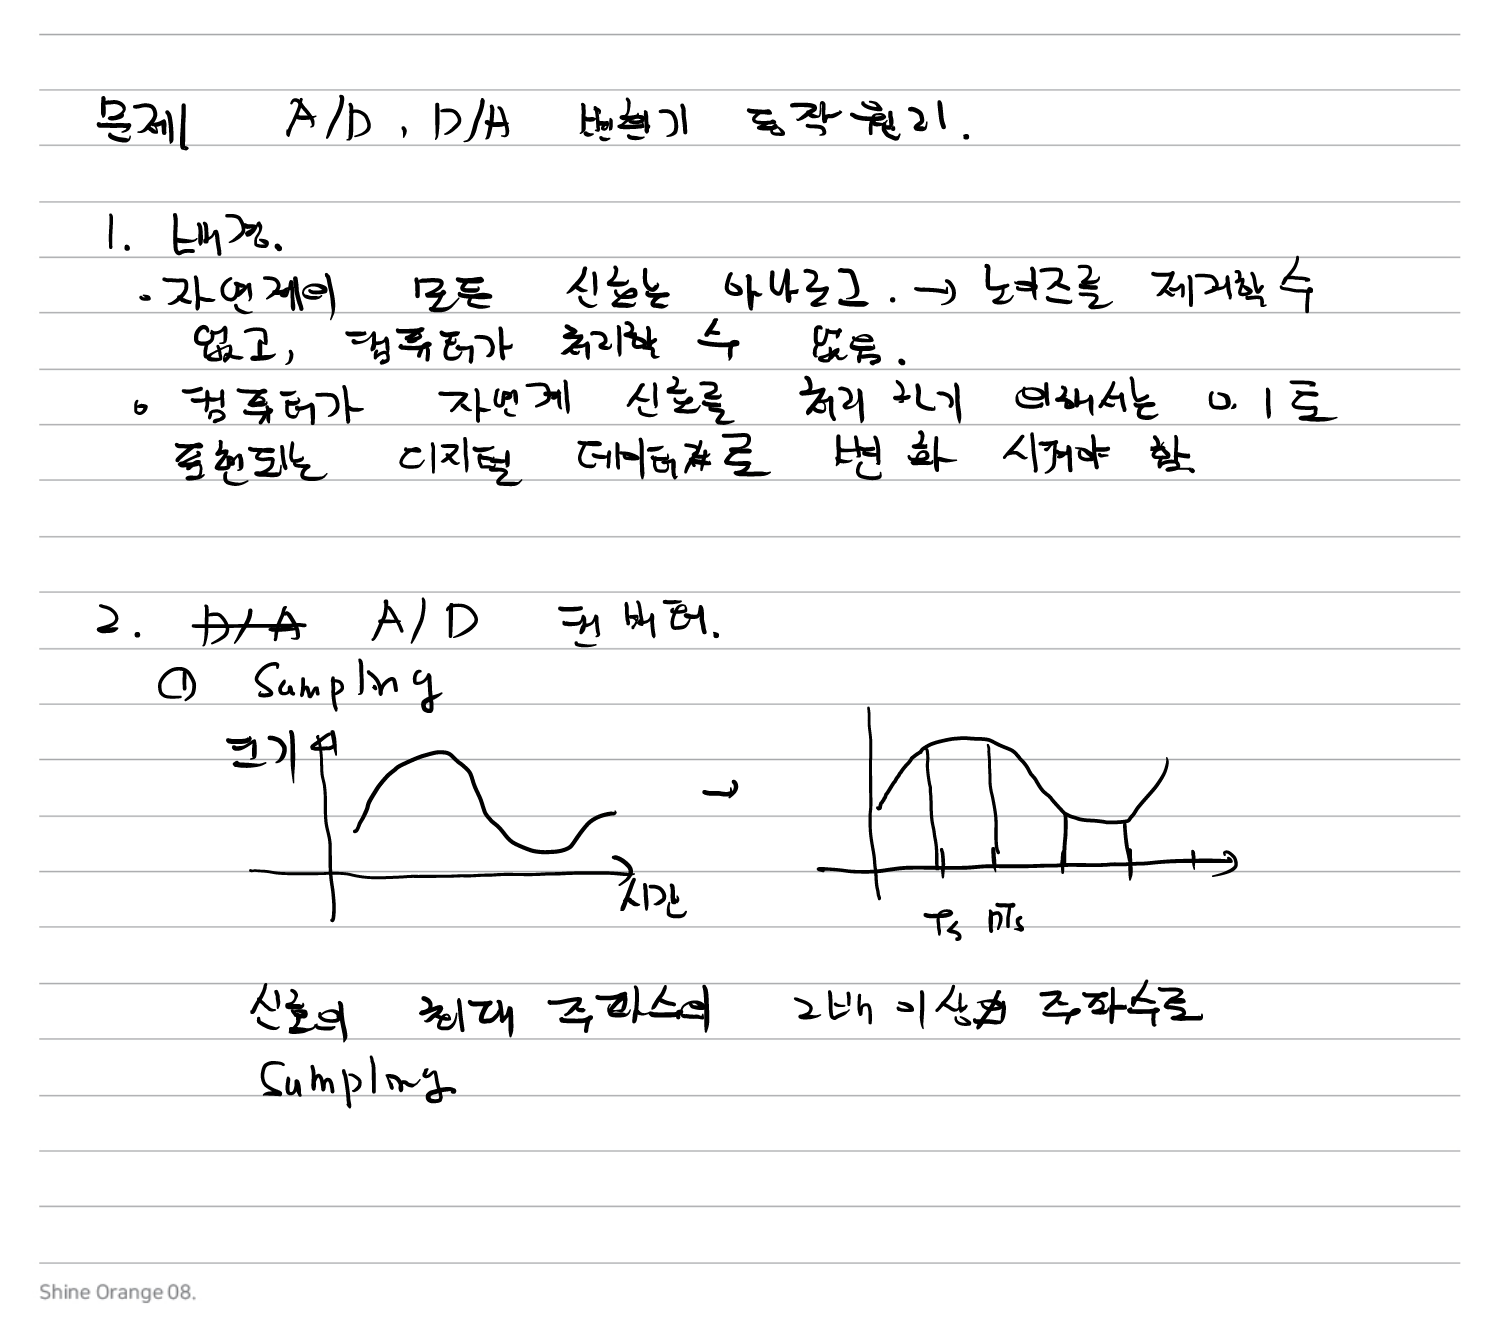 문제 A/D, D/A 변환기 동작원리.
1. 배경.
· 자연계의 모든 신호는 아나로그. → 노이즈를 제거할 수
없고, 컴퓨터가 처리할 수 없음.
· 컴퓨터가 자연계 신호를 처리하기 위해서는 0.1로
표현되는 디지털 데이터로 변화 시켜야 함.
2. D/A A/D 컨버터.
① Sampling
크기
→
시간
Ts nTs
신호의 최대 주파수의 2배 이상 주파수로
Sampling
Shine Orange 08.